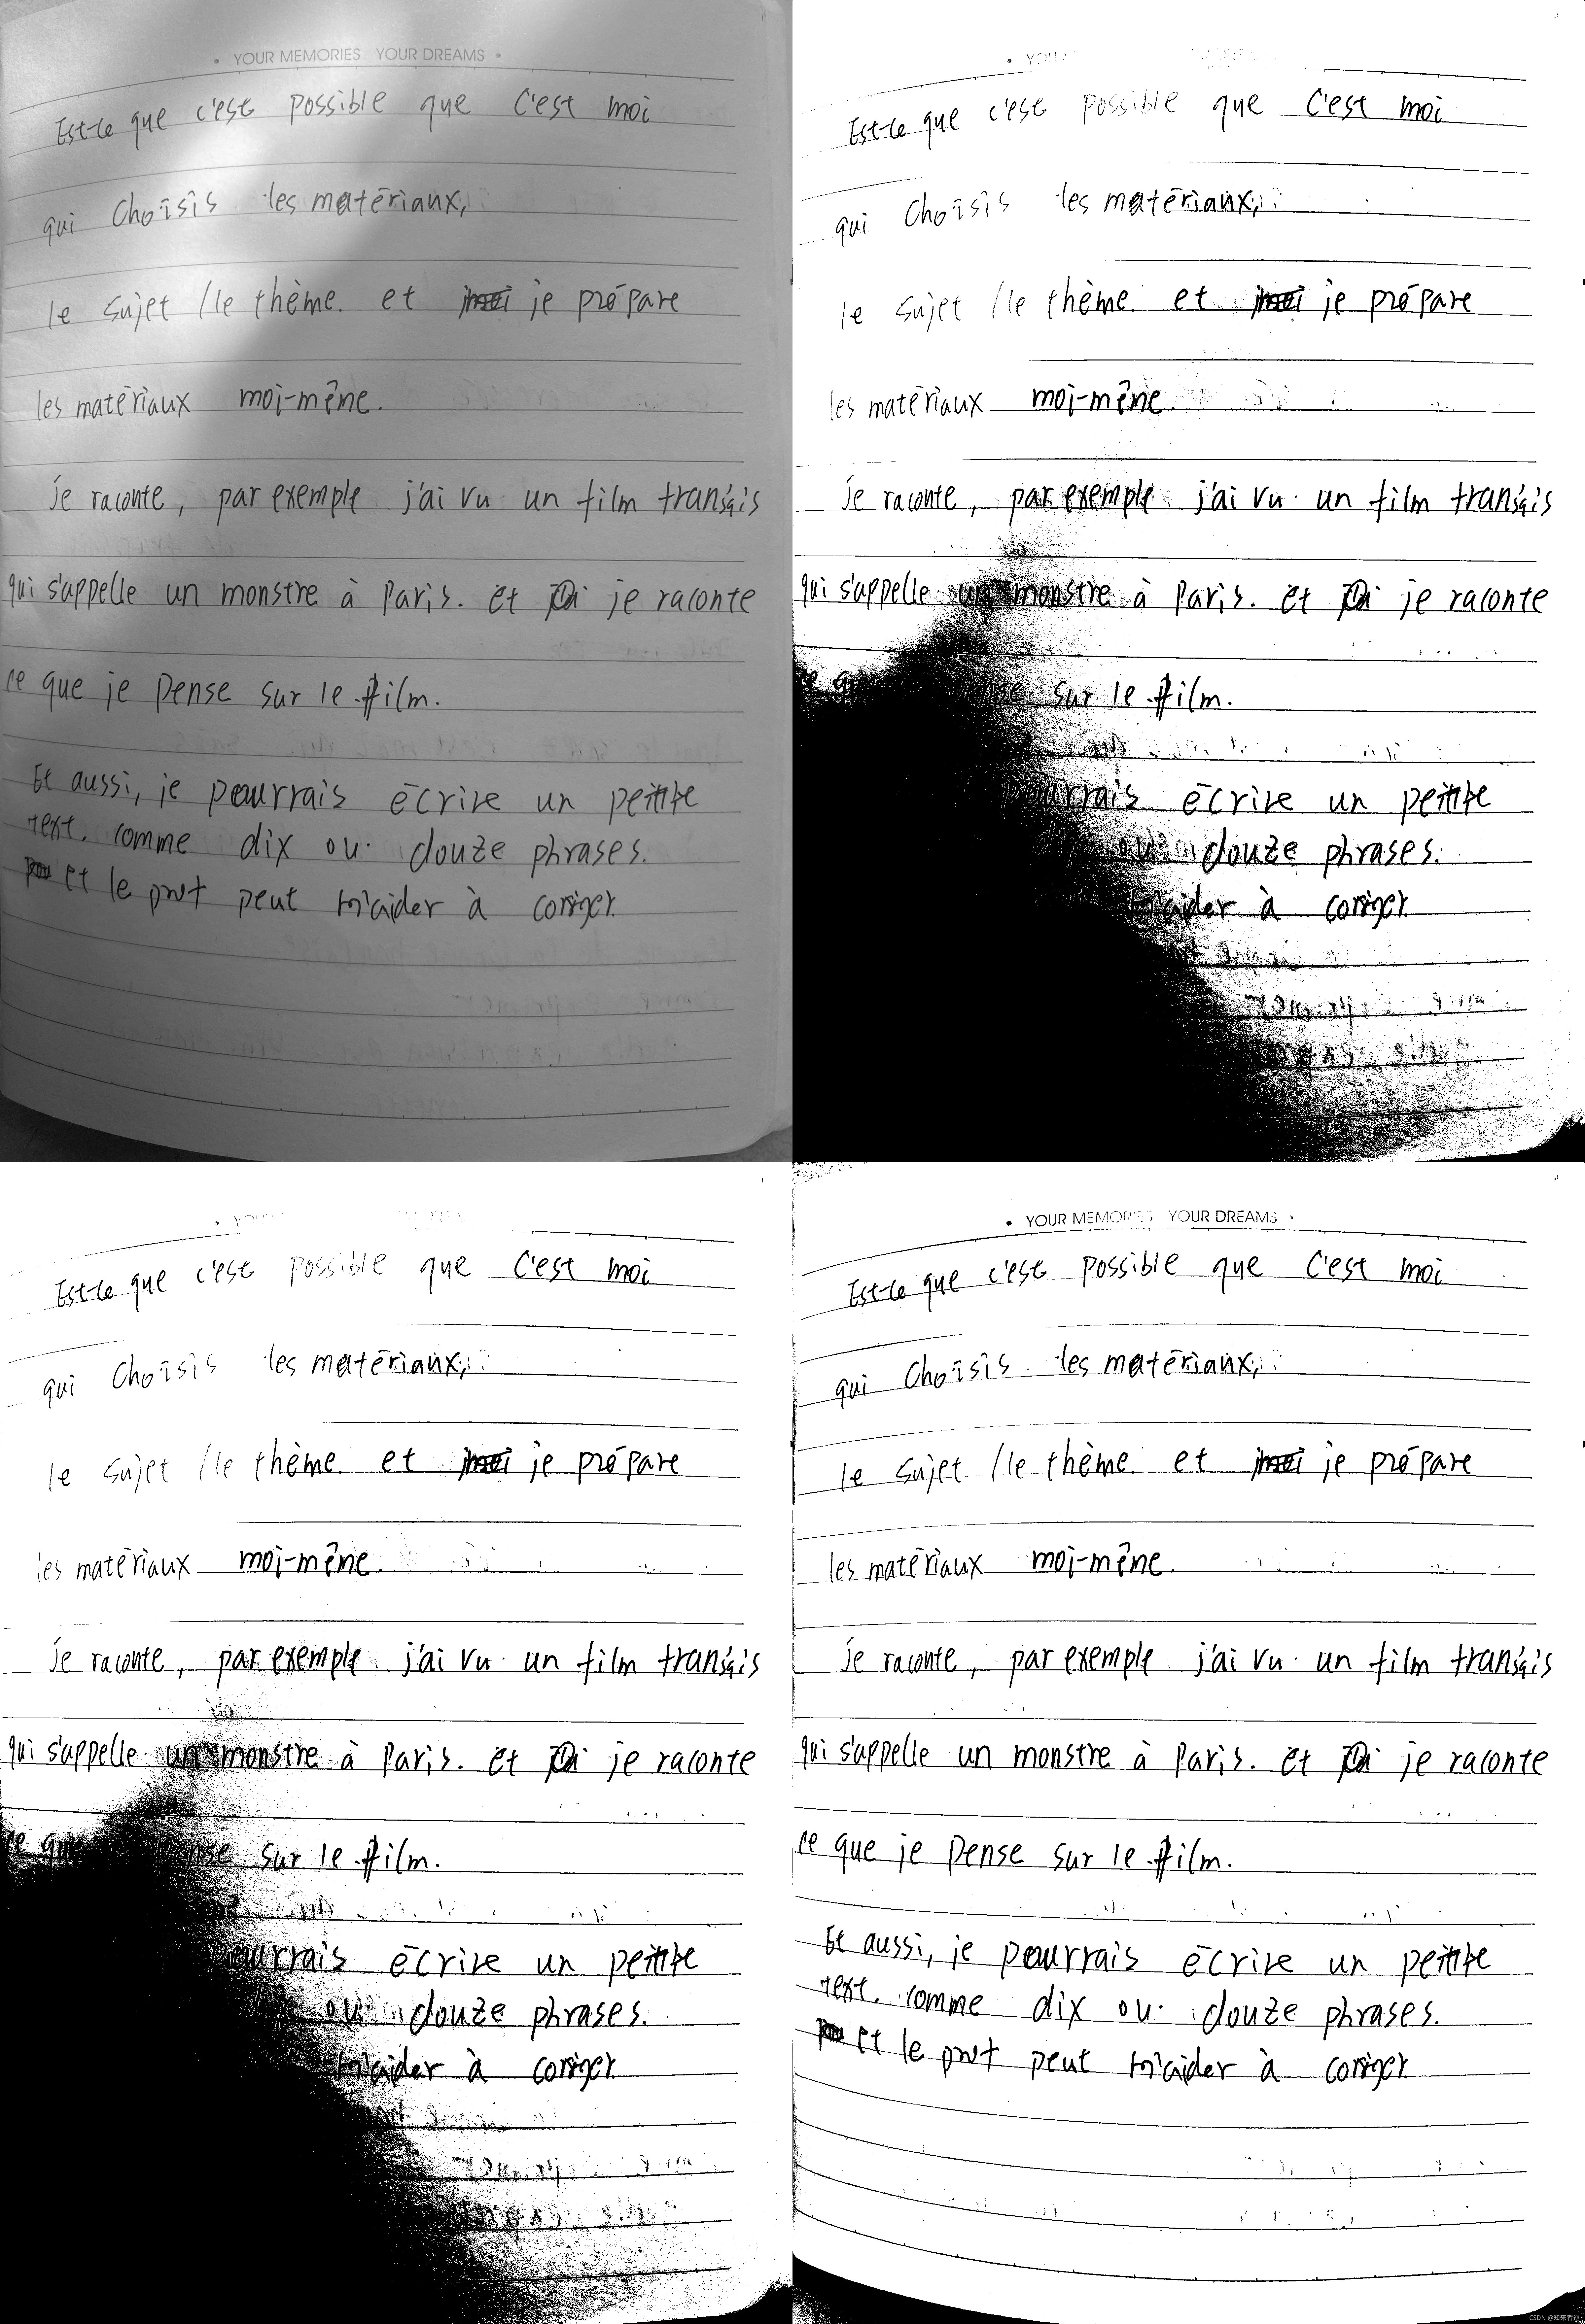 • YOUR MEMORIES YOUR DREAMS •
Est-ce que c'est possible que C'est moi
qui Choisis les matériaux,
le sujet /le thème. et je prépare
les matériaux moi-mêne.
je raconte, par exemple j'ai vu un film transçais
qui s'appelle un monstre à Paris. et je raconte
ce que je pense sur le film.
Et aussi, je pourrais écrire un petite
text. comme dix ou douze phrases.
et le prof peut m'aider à coriger.
Est-ce que c'est possible que C'est moi
qui Choisis les matériaux,
le sujet /le thème. et je prépare
les matériaux moi-mêne.
je raconte, par exemple j'ai vu un film transçais
qui s'appelle un monstre à Paris. et je raconte
sur le film.
pourrais écrire un petite
ou douze phrases.
m'aider à coriger.
Est-ce que c'est possible que C'est moi
qui Choisis les matériaux,
le sujet /le thème. et je prépare
les matériaux moi-mêne.
je raconte, par exemple j'ai vu un film transçais
qui s'appelle un monstre à Paris. et je raconte
ce que pense sur le film.
pourrais écrire un petite
ou douze phrases.
m'aider à coriger.
• YOUR MEMORIES YOUR DREAMS •
Est-ce que c'est possible que C'est moi
qui Choisis les matériaux,
le sujet /le thème. et je prépare
les matériaux moi-mêne.
je raconte, par exemple j'ai vu un film transçais
qui s'appelle un monstre à Paris. et je raconte
ce que je pense sur le film.
Et aussi, je pourrais écrire un petite
text. comme dix ou douze phrases.
et le prof peut m'aider à coriger.